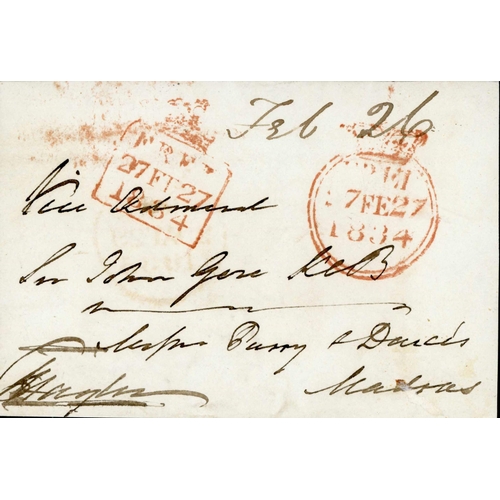 Feb 26
FREE
27 FE 27
1834
27 FE 27
1834
Vice Admiral
Sir John Gore KCB
Messrs Parry & Dare's
Madras